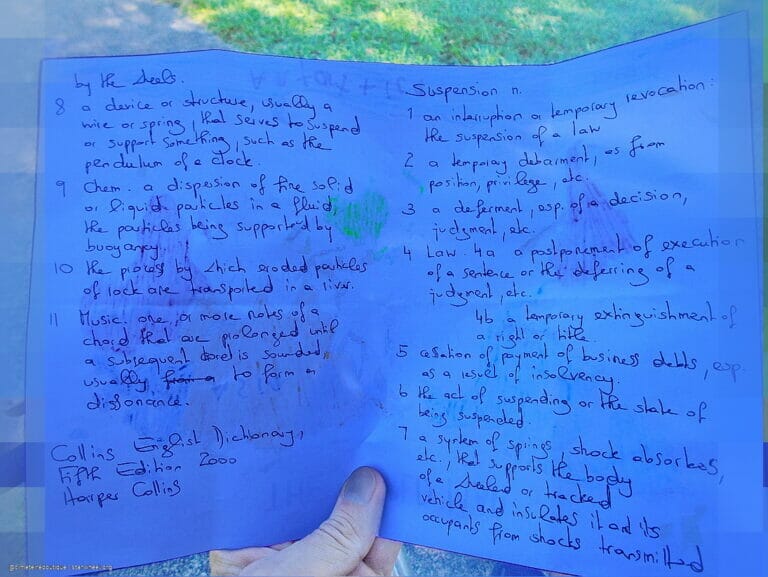 Suspension n.
1 an interruption or temporary revocation:
the suspension of a law
2 a temporary debarment, as from
position, privilege, etc.
3 a deferment, esp. of a decision,
judgment, etc.
4 Law. 4a a postponement of execution
of a sentence or the deferring of a
judgment, etc.
4b a temporary extinguishment of
a right or title.
5 cessation of payment of business debts, esp.
as a result of insolvency.
6 the act of suspending or the state of
being suspended.
7 a system of springs, shock absorbers,
etc., that supports the body
of a wheeled or tracked
vehicle and insulates it and its
occupants from shocks transmitted
by the wheels.
8 a device or structure, usually a
wire or spring, that serves to suspend
or support something, such as the
pendulum of a clock.
9 Chem. a dispersion of fine solid
or liquid particles in a fluid,
the particles being supported by
buoyancy.
10 the process by which eroded particles
of rock are transported in a river.
11 Music. one or more notes of a
chord that are prolonged until
a subsequent chord is sounded,
usually to form a
dissonance.
Collins English Dictionary,
Fifth Edition 2000
Harper Collins